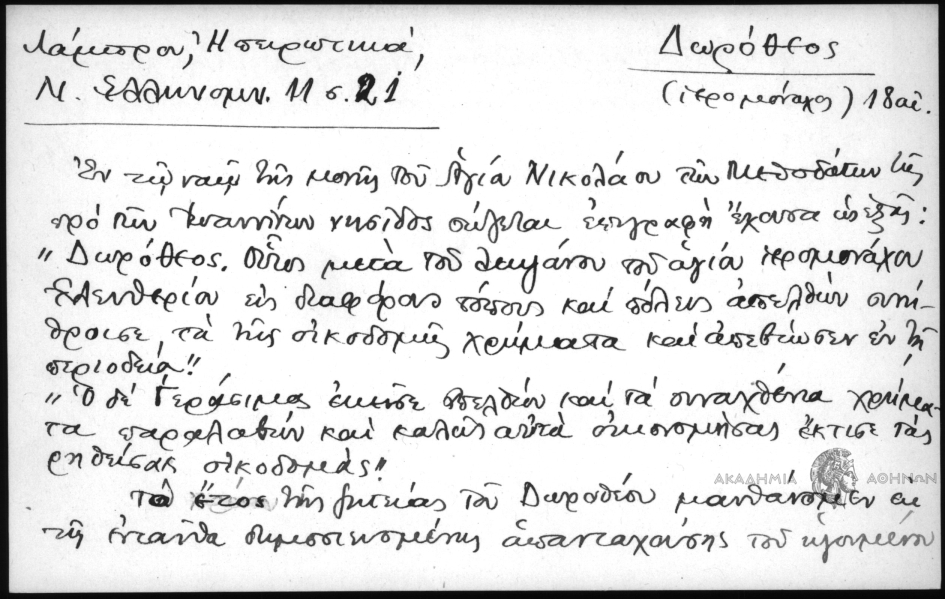 Λάμπρου, Ἠπειρωτικά,
Ν. Ἑλληνομν. 11 σ. 21
Δωρόθεος
(ἱερομόναχος) 18 αἰ.
Ἐν τῷ ναῷ τῆς μονῆς τοῦ Ἁγίου Νικολάου τῶν τῆς
πρὸ τῶν Ἰωαννίνων νησῖδος σώζεται ἐπιγραφὴ ἔχουσα ὡς ἑξῆς:
"Δωρόθεος. Οὗτος μετὰ τοῦ λειψάνου τοῦ ἁγίου ἱερομονάχου
Ἐλευθερίου εἰς διαφόρους τόπους καὶ πόλεις ἀπελθὼν συνή-
θροισε τὰ τῆς οἰκοδομῆς χρήματα καὶ ἀπεβίωσεν ἐν τῇ
περιοδείᾳ"
"Ὁ δὲ Γεράσιμος ἐκεῖσε ἀπελθὼν καὶ τὰ συναχθέντα χρήμα-
τα παραλαβὼν καὶ καλῶς αὐτὰ οἰκονομήσας ἔκτισε τὰς
ῥηθείσας οἰκοδομάς"
Τὸ ἔτος τῆς ζητείας τοῦ Δωροθέου μανθάνομεν ἐκ
τῆς ἐνταῦθα δημοσιευομένης ἀπανταχούσης τοῦ ἡγουμένου
ΑΚΑΔΗΜΙΑ ΑΘΗΝΩΝ